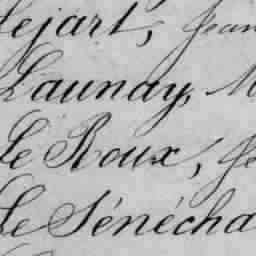 Lejart, Jean
Launay, M
Le Roux, Je
Le Sénécha